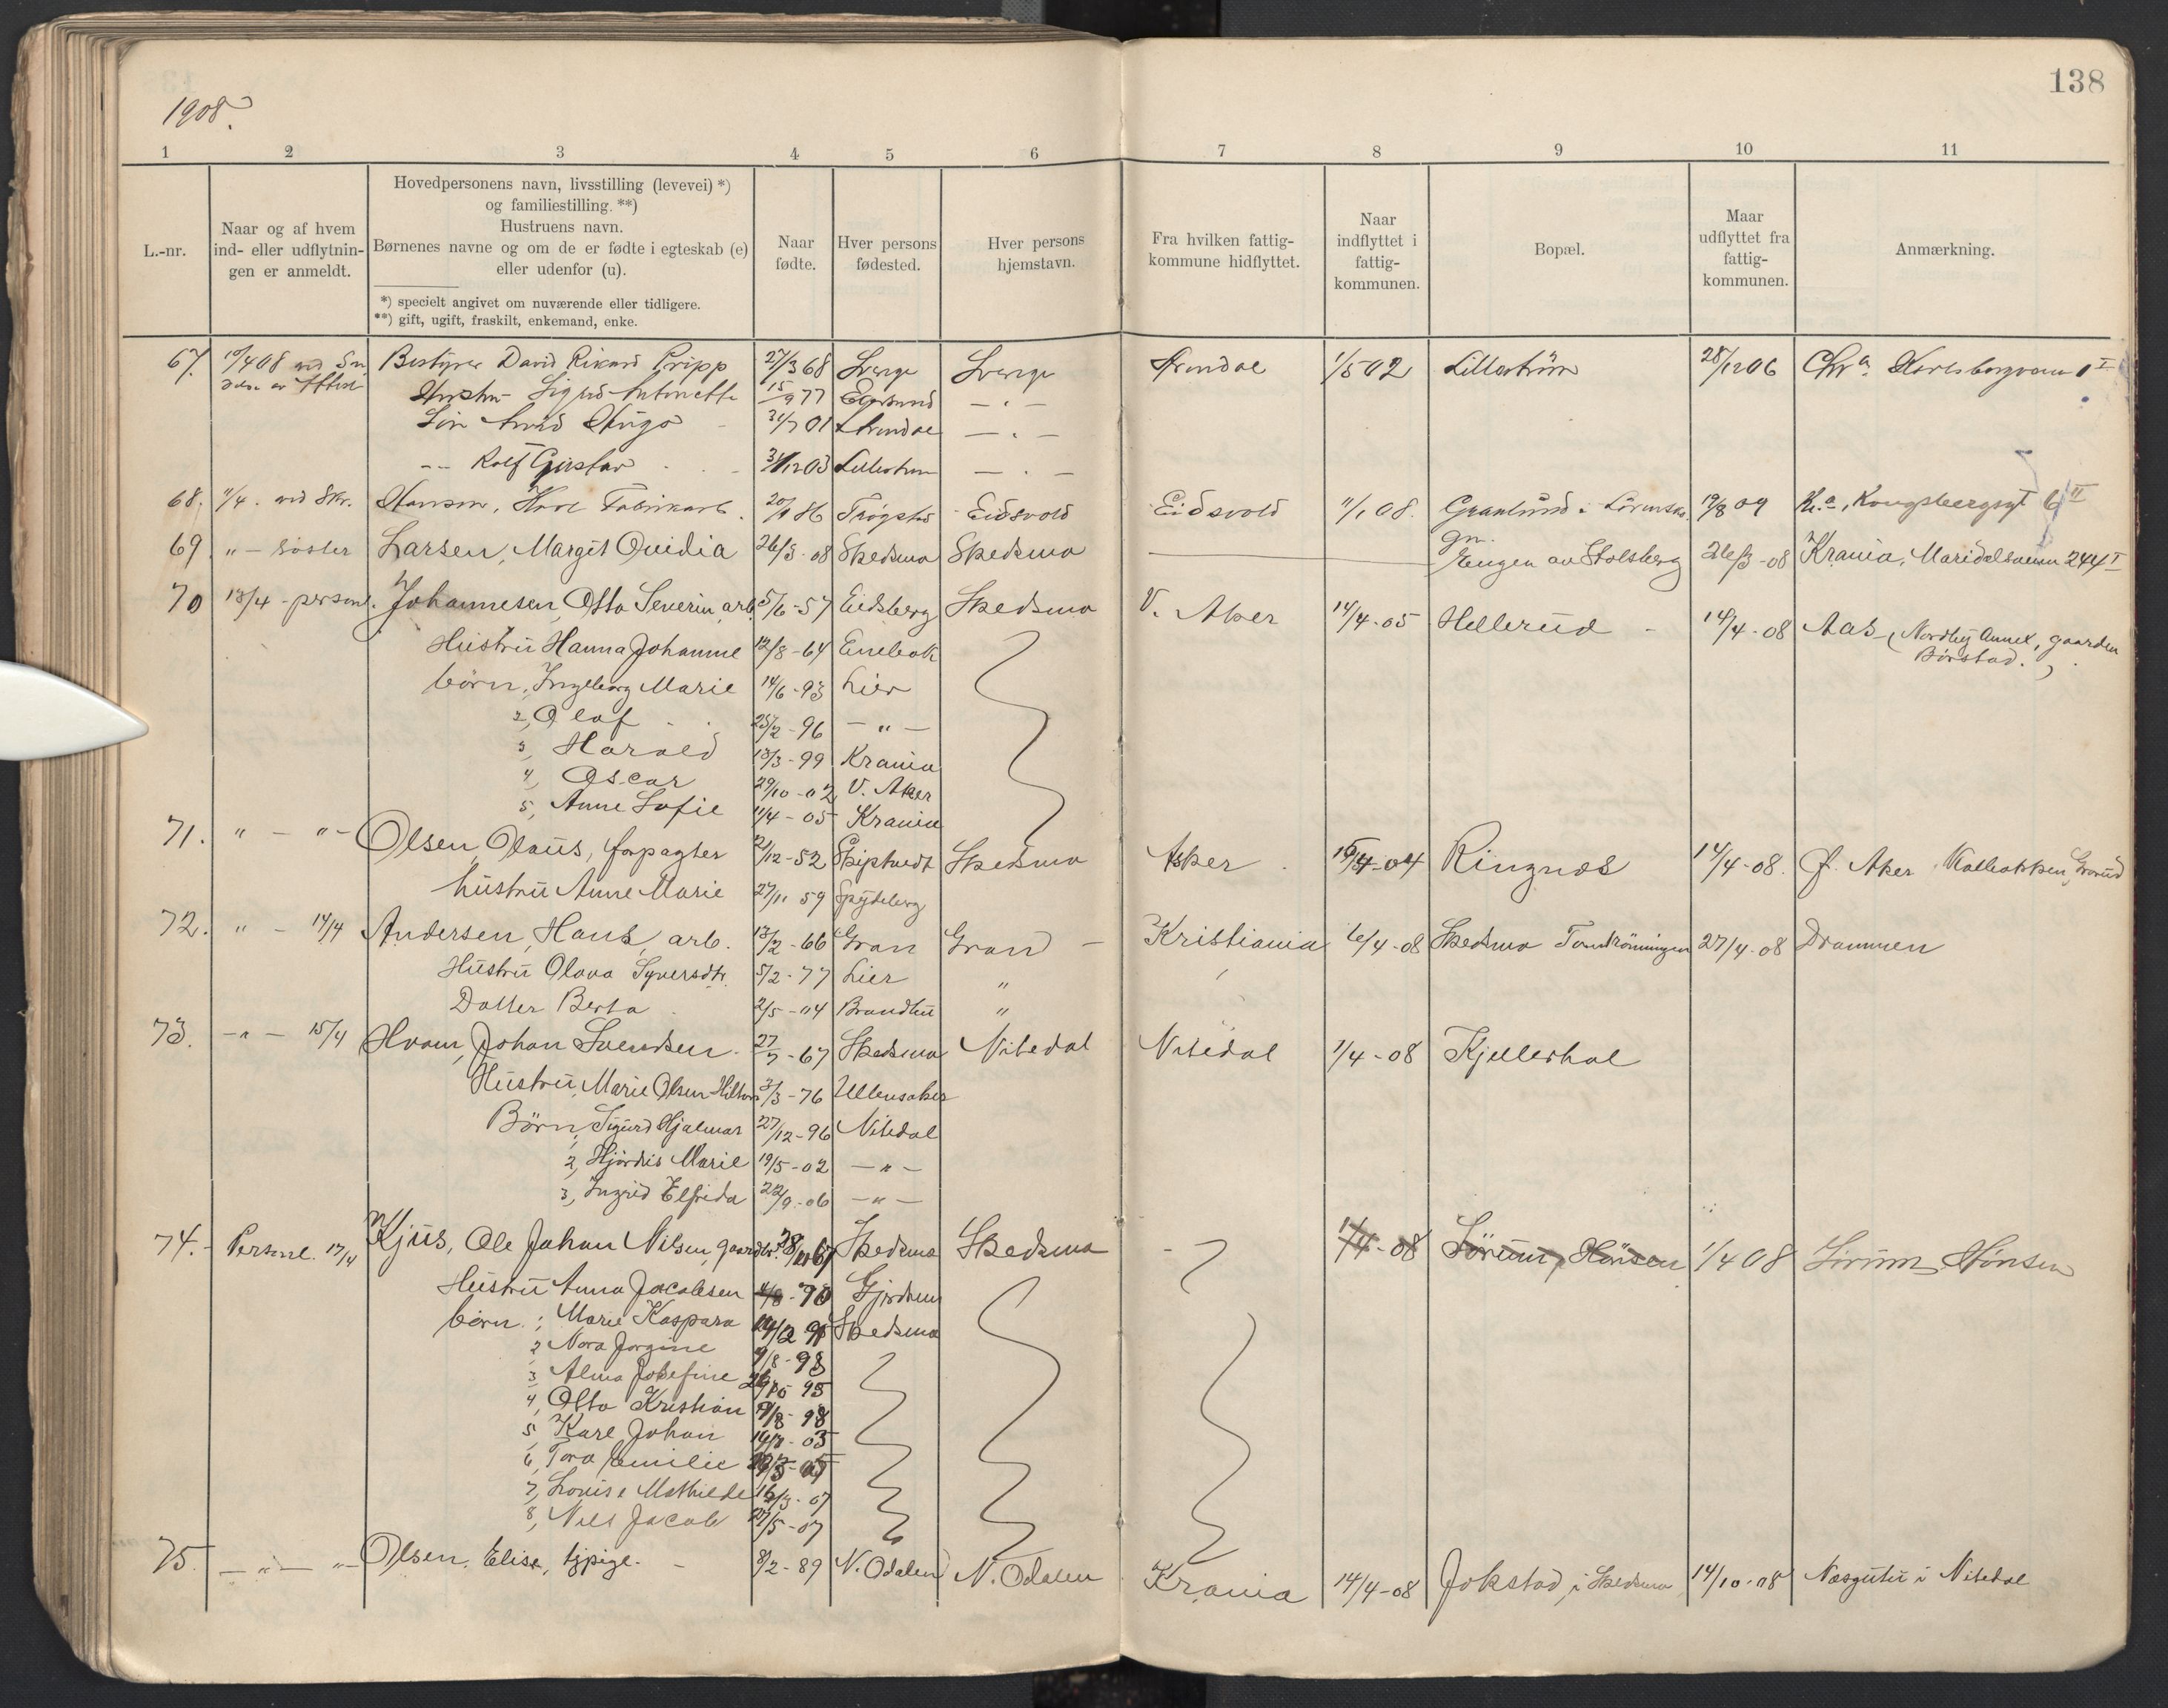 138
1908.
1 2 3 4 5 6 7 8 9 10 11
L.-nr.
Naar og af hvem
ind- eller udflytnin-
gen er anmeldt.
Hovedpersonens navn, livsstilling (levevei) *)
og familiestilling. **)
Hustruens navn.
Børnenes navne og om de er fødte i egteskab (e)
eller udenfor (u).
*) specielt angivet om nuværende eller tidligere.
**) gift, ugift, fraskilt, enkemand, enke.
Naar
fødte.
Hver persons
fødested.
Hver persons
hjemstavn.
Fra hvilken fattig-
kommune hidflyttet.
Naar
indflyttet i
fattig-
kommunen.
Bopæl.
Maar
udflyttet fra
fattig-
kommunen.
Anmærkning.
67. 10/4 08 Bestyrer David Rikard Pripp 27/3 68 Sverige Sverige Arendal 1/5 02 Lillestrøm 28/12 06 Chr.a
Hustru Sigrid Antonette 15/9 77 Egersund — " —
Søn Arvid Hugo 31/7 01 Arendal — " —
-- Rolf Gustav 31/12 03 Lillestrøm — " —
68. 11/4. ved Skr. Hansen, Fabrikarb. 20/11 86 Trøgstad Eidsvold Eidsvold 11/1 08. Granlund i Lørensk. 19/8 09 K.a, Kongsbergsgt 6 II
69. " — søster Larsen, Margit Ovidia 26/3-08 Skedsmo Skedsmo gm. Engen av Stolsberg 26/3-08 Krania, Maridalsveien 244 I
70 13/4 - personl. Johannesen, Otto Severin, arb. 5/6-57 Eidsberg Skedsmo V. Aker 14/4-05 Hellerud - 14/4-08 Aas (Nordby Annex, gaarden
Børstad.)
Hustru Hanna Johanne 12/8-64 Enebak
børn, Ingeborg Marie 14/6-93 Lier
2, Olaf 25/2-96 — " —
3, Harald 13/3-99 Krania
4, Oscar 29/10-02 V. Aker
5, Anne Sofie 11/4-05 Krania
71. " — " — Olsen, Olaus, forpagter 21/12-52 Skiptvedt Skedsmo Asker 14/4-04 Ringnes 14/4-08. Ø. Aker Kalbakken, Grorud
hustru Anne Marie 27/11 59 Spydeberg
72. " — 14/4 Andersen, Hans, arb. 13/2-66 Gran Gran — Kristiania 6/4-08 Skedsmo 27/4-08 Drammen
Hustru Olava Syversdtr. 5/2-77 Lier "
Datter Berta 2/5-04 Brandbu "
73. — " — 15/4 Hvam, Johan Svendsen. 27/7-67 Skedsmo Nitedal Nitedal 1/4-08 Kjellerhol
Hustru, Marie Olsen 3/3-76 Ullensaker
Børn, Sigurd Hjalmar 27/12-96 Nitedal
2, Hjørdis Marie 19/5-02 — " —
3, Ingrid Elfrida 22/9-06 — " —
74. Personl. 17/4 Kjus, Ole Johan Nilsen, gaardbr. 28/11 67 Skedsmo Skedsmo - 1/4-08 Sørum, Hønsen 1/4 08 Sørum, Hønsen
Hustru Anna Jacobsen 4/8-70 Gjerdrum
børn.; Marie Kaspara Skedsmo
2 Nora Jorgine 9/8-93
3 Alma Josefine 95
4, Otto Kristian 98
5 Karl Johan 03
6, Tora Emilie 05
7, Lovise Mathilde 16/3-07
8, Nils Jacob 27/5-07
75. — " — " — Olsen, Elise, tjpige. 8/2-89 N. Odalen N. Odalen Krania 14/4-08 Jokstad i Skedsmo 14/10-08 i Nitedal